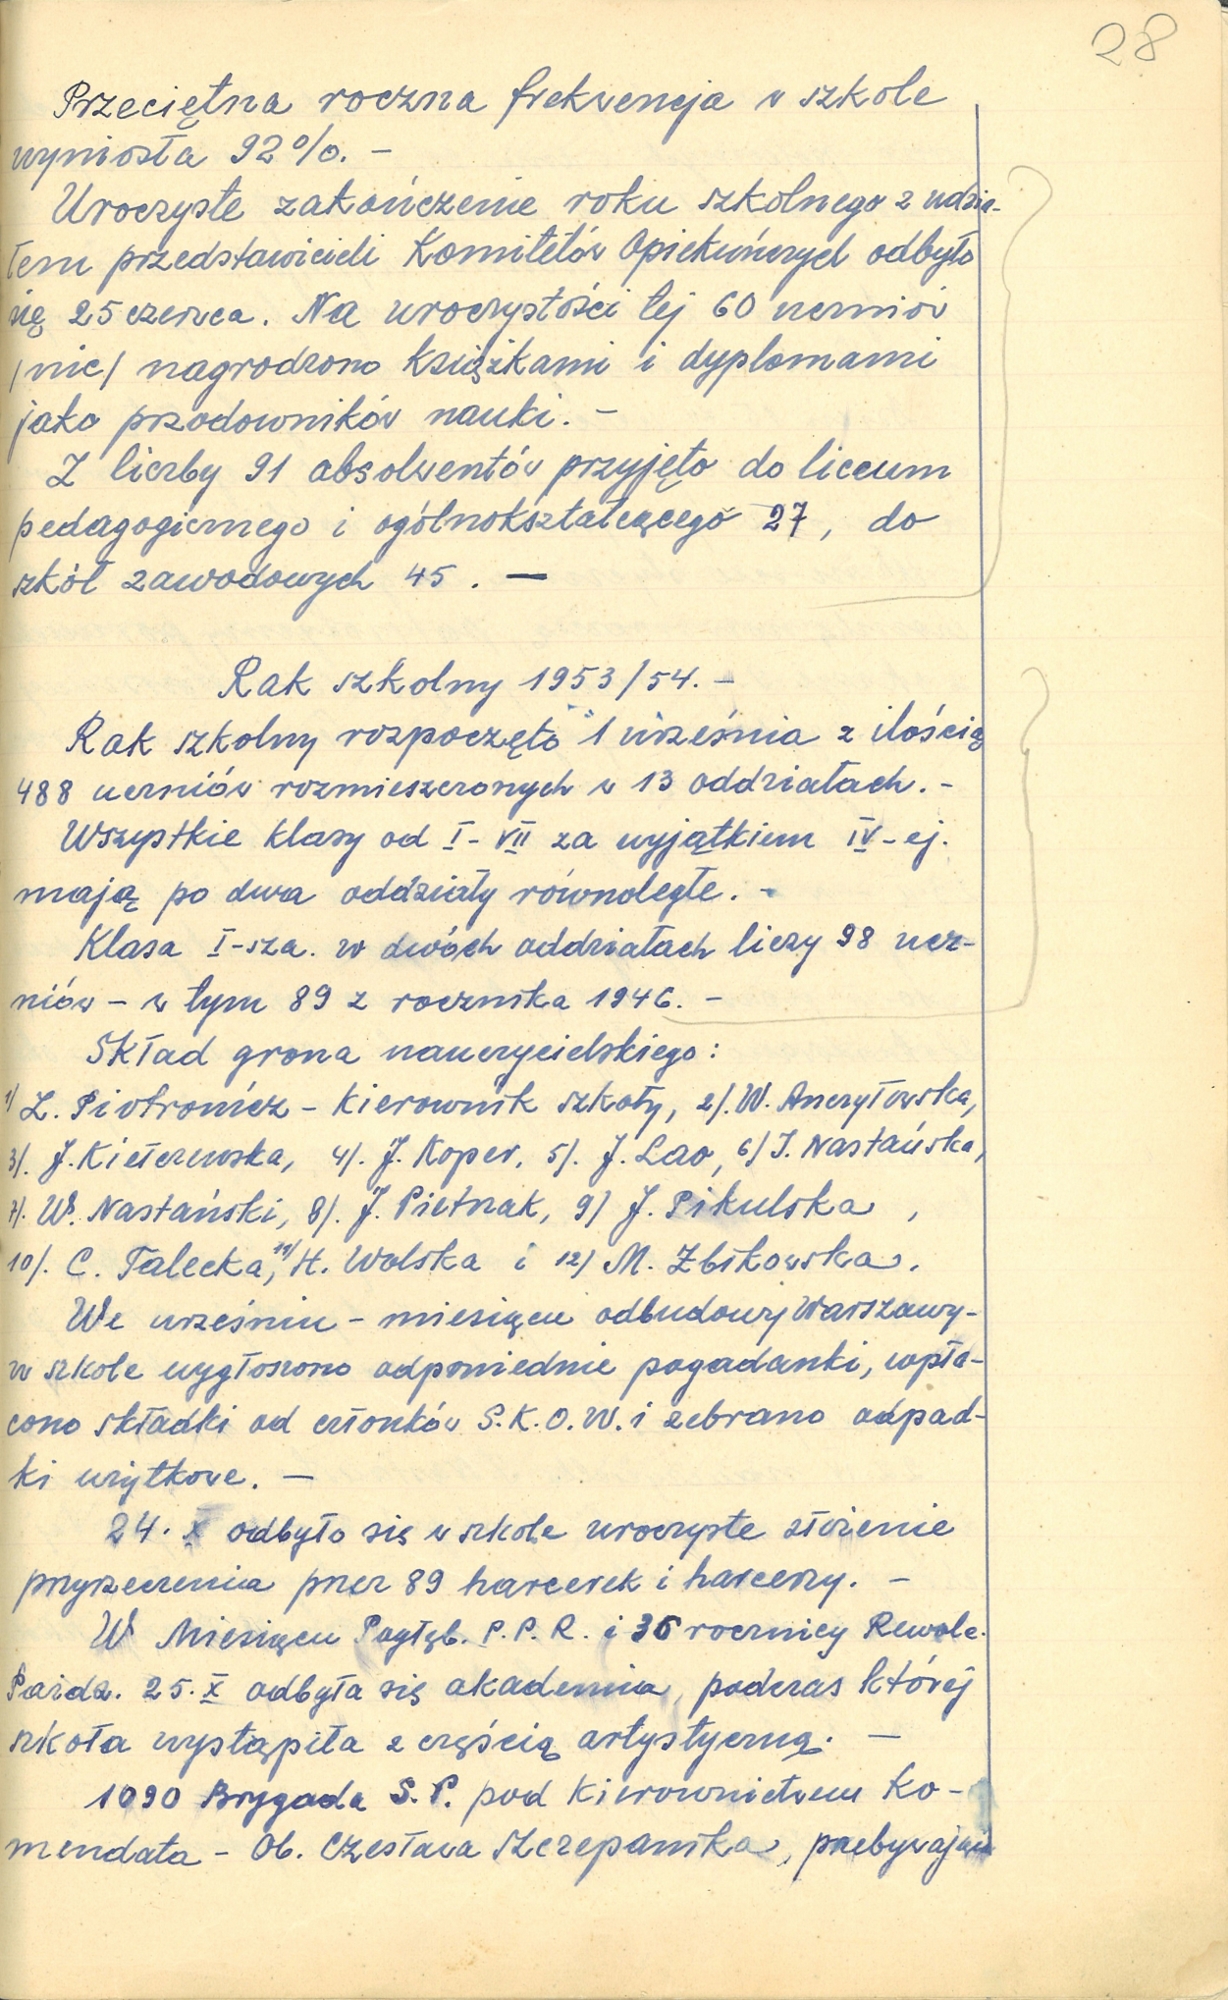 28
Przeciętna roczna frekwencja w szkole
wyniosła 92%. –
Uroczyste zakończenie roku szkolnego z udzia-
łem przedstawicieli Komitetów Opiekuńczych odbyło
się 25 czerwca. Na uroczystości tej 60 uczniów
/nic/ nagrodzono książkami i dyplomami
jako przodowników nauki. –
Z liczby 91 absolwentów przyjęto do liceum
pedagogicznego i ogólnokształcącego 27, do
szkół zawodowych 45. –
Rok szkolny 1953/54. –
Rok szkolny rozpoczęto 1 września z ilością
488 uczniów rozmieszczonych w 13 oddziałach. –
Wszystkie klasy od I - VII za wyjątkiem IV-ej.
mają po dwa oddziały równoległe. –
Klasa I-sza. w dwóch oddziałach liczy 98 ucz-
niów – w tym 89 z rocznika 1946. –
Skład grona nauczycielskiego:
1/ Z. Piotrowicz – Kierownik szkoły, 2/. W. Anczyłowska,
3/. J. Kiełczewska, 4/. J. Koper, 5/. J. Lao, 6/ I. Nastańska,
7/. W. Nastański, 8/. J. Pietnak, 9/ J. Pikulska,
10/. C. Talecka, 11/ H. Wolska i 12/ M. Zbikowska.
We wrześniu – miesiącu odbudowy Warszawy –
w szkole wygłoszono odpowiednie pogadanki, wpła-
cono składki od członków S.K.O.W. i zebrano odpad-
ki użytkowe. –
24. X odbyło się w szkole uroczyste złożenie
przyrzeczenia przez 89 harcerek i harcerzy. –
W Miesiącu Pogłęb. P.P.R. i 36 rocznicy Rewolc.
Paźdz. 25. X odbyła się akademia, podczas której
szkoła wystąpiła z częścią artystyczną. –
1090 Brygada S.P. pod Kierownictwem Ko-
mendata – Ob. Czesława Szczepanika, przebywająca